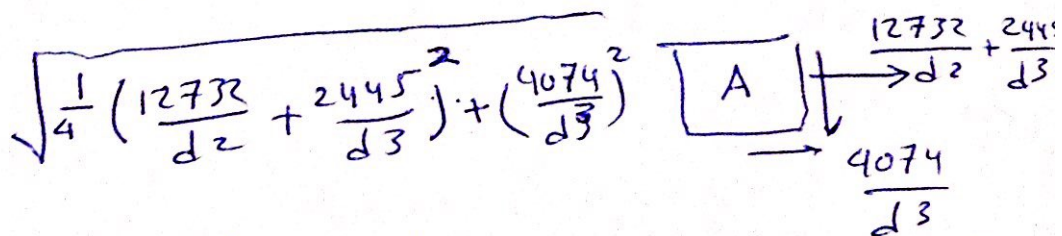 √ 1/4 (12732/d2 + 2445/d3)² + (4074/d3)²
A
12732/d2 + 2445/d3
4074/d3